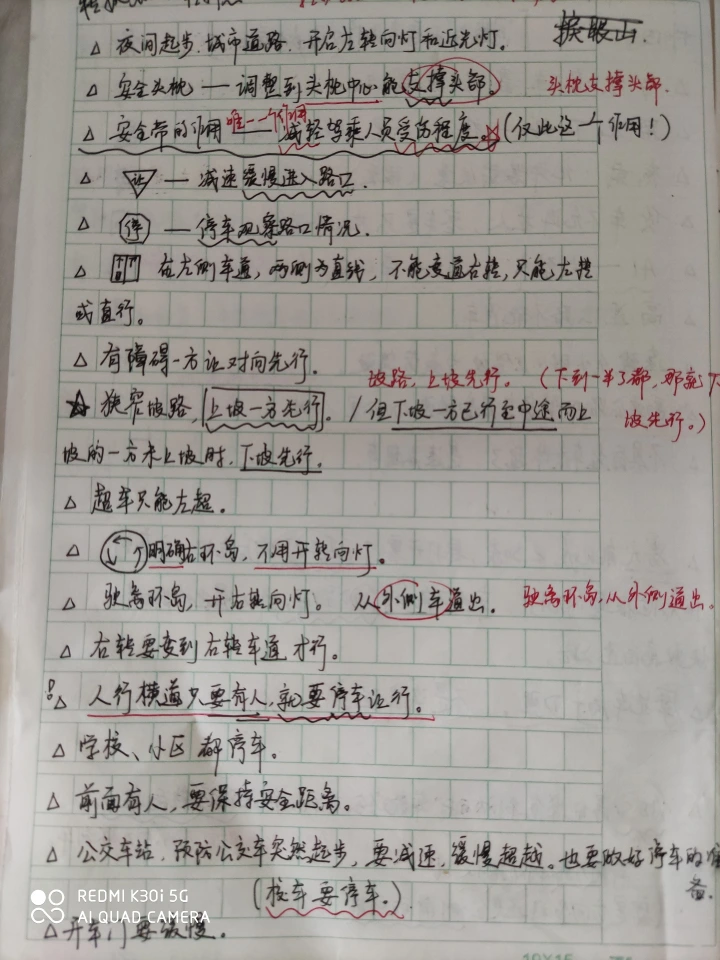 △ 夜间起步.城市道路.开启左转向灯和近光灯。
△ 安全头枕 — 调整到头枕中心能支撑头部。 头枕支撑头部.
唯一一个作用
△ 安全带的作用 — 减轻驾乘人员受伤程度。(仅此这一个作用!)
△ 让 — 减速缓慢进入路口.
△ 停 — 停车观察路口情况.
△ 在左侧车道,两侧为直线,不能变道右转,只能左转
或直行。
△ 有障碍一方让对向先行.
坡路,上坡先行。(下到一半了都,那就下
坡先行。)
☆ 狭窄坡路,上坡一方先行. /但下坡一方已行至中途而上
坡的一方未上坡时,下坡先行.
△ 超车只能左超.
△ 明确右环岛,不用开转向灯.
△ 驶离环岛,开右转向灯。从外侧车道出. 驶离环岛,从外侧道出.
△ 右转要变到右转车道才行。
!△ 人行横道只要有人,就要停车让行.
△ 学校、小区都停车.
△ 前面有人,要保持安全距离。
△ 公交车站,预防公交车突然起步,要减速,缓慢超越。也要做好停车的准
备.
(校车要停车。)
△ 开车门要缓慢.
REDMI K30i 5G
AI QUAD CAMERA